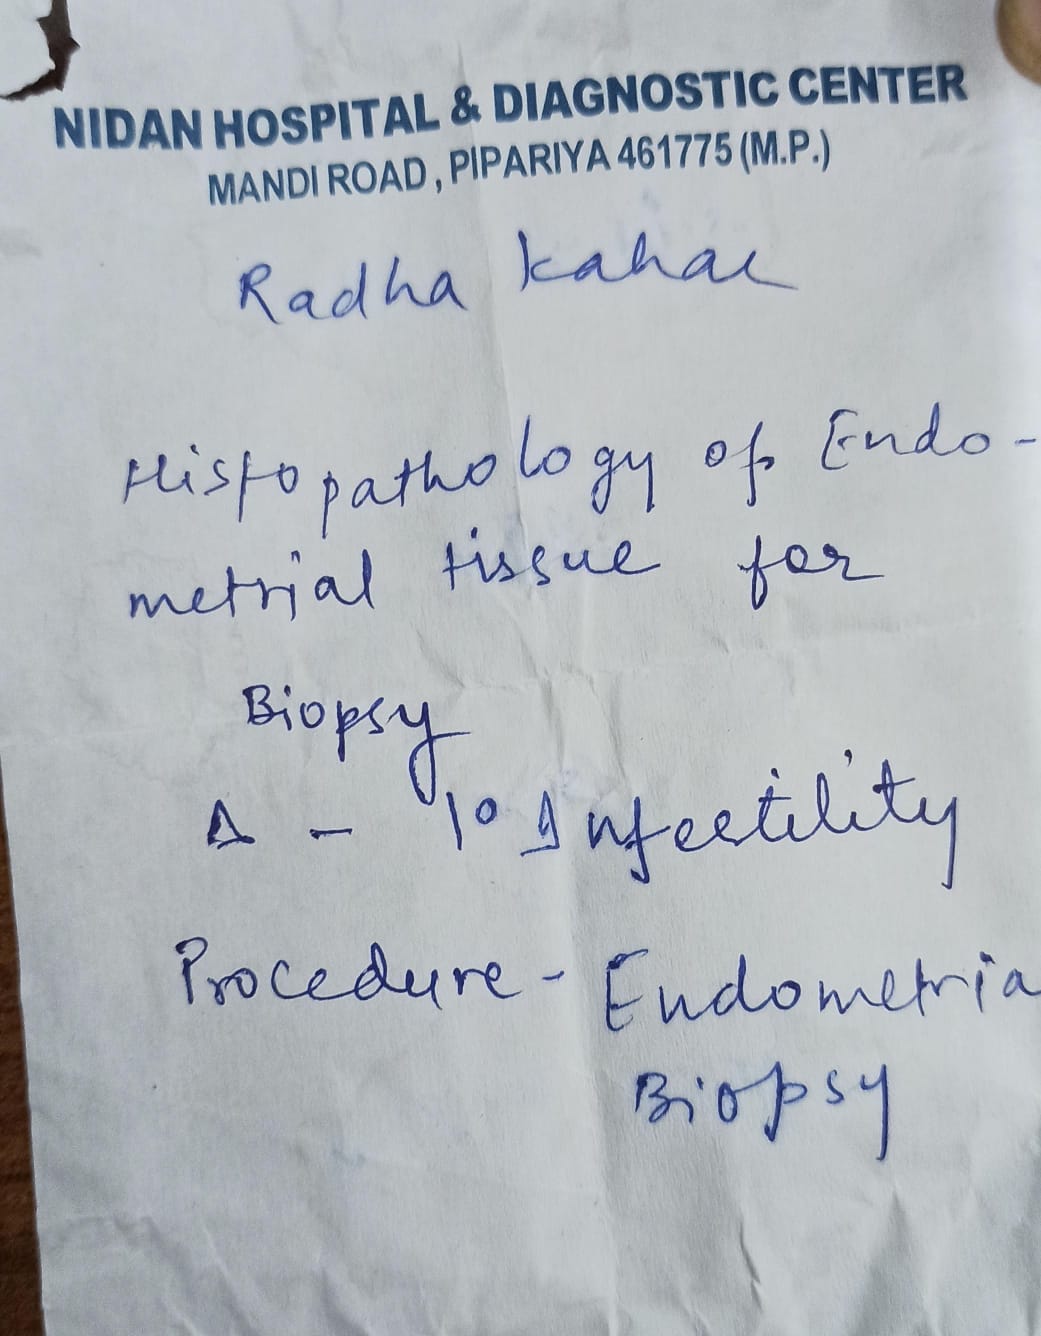 NIDAN HOSPITAL & DIAGNOSTIC CENTER
MANDI ROAD, PIPARIYA 461775 (M.P.)
Radha Kahar
Histopathology of Endo-
metrial tissue for
Biopsy
Δ - 1° Infertility
Procedure - Endometria
Biopsy